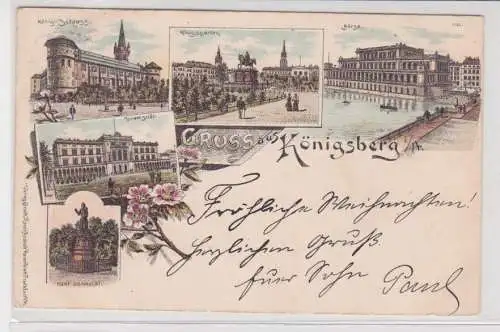 Königl. Schloss.
Königsgarten.
Börse.
Universität.
Gruss aus
Königsberg i/Pr.
Kant Denkmal.
Fröhliche Weihnachten!
Herzlichen Gruß
Euer Sohn Paul